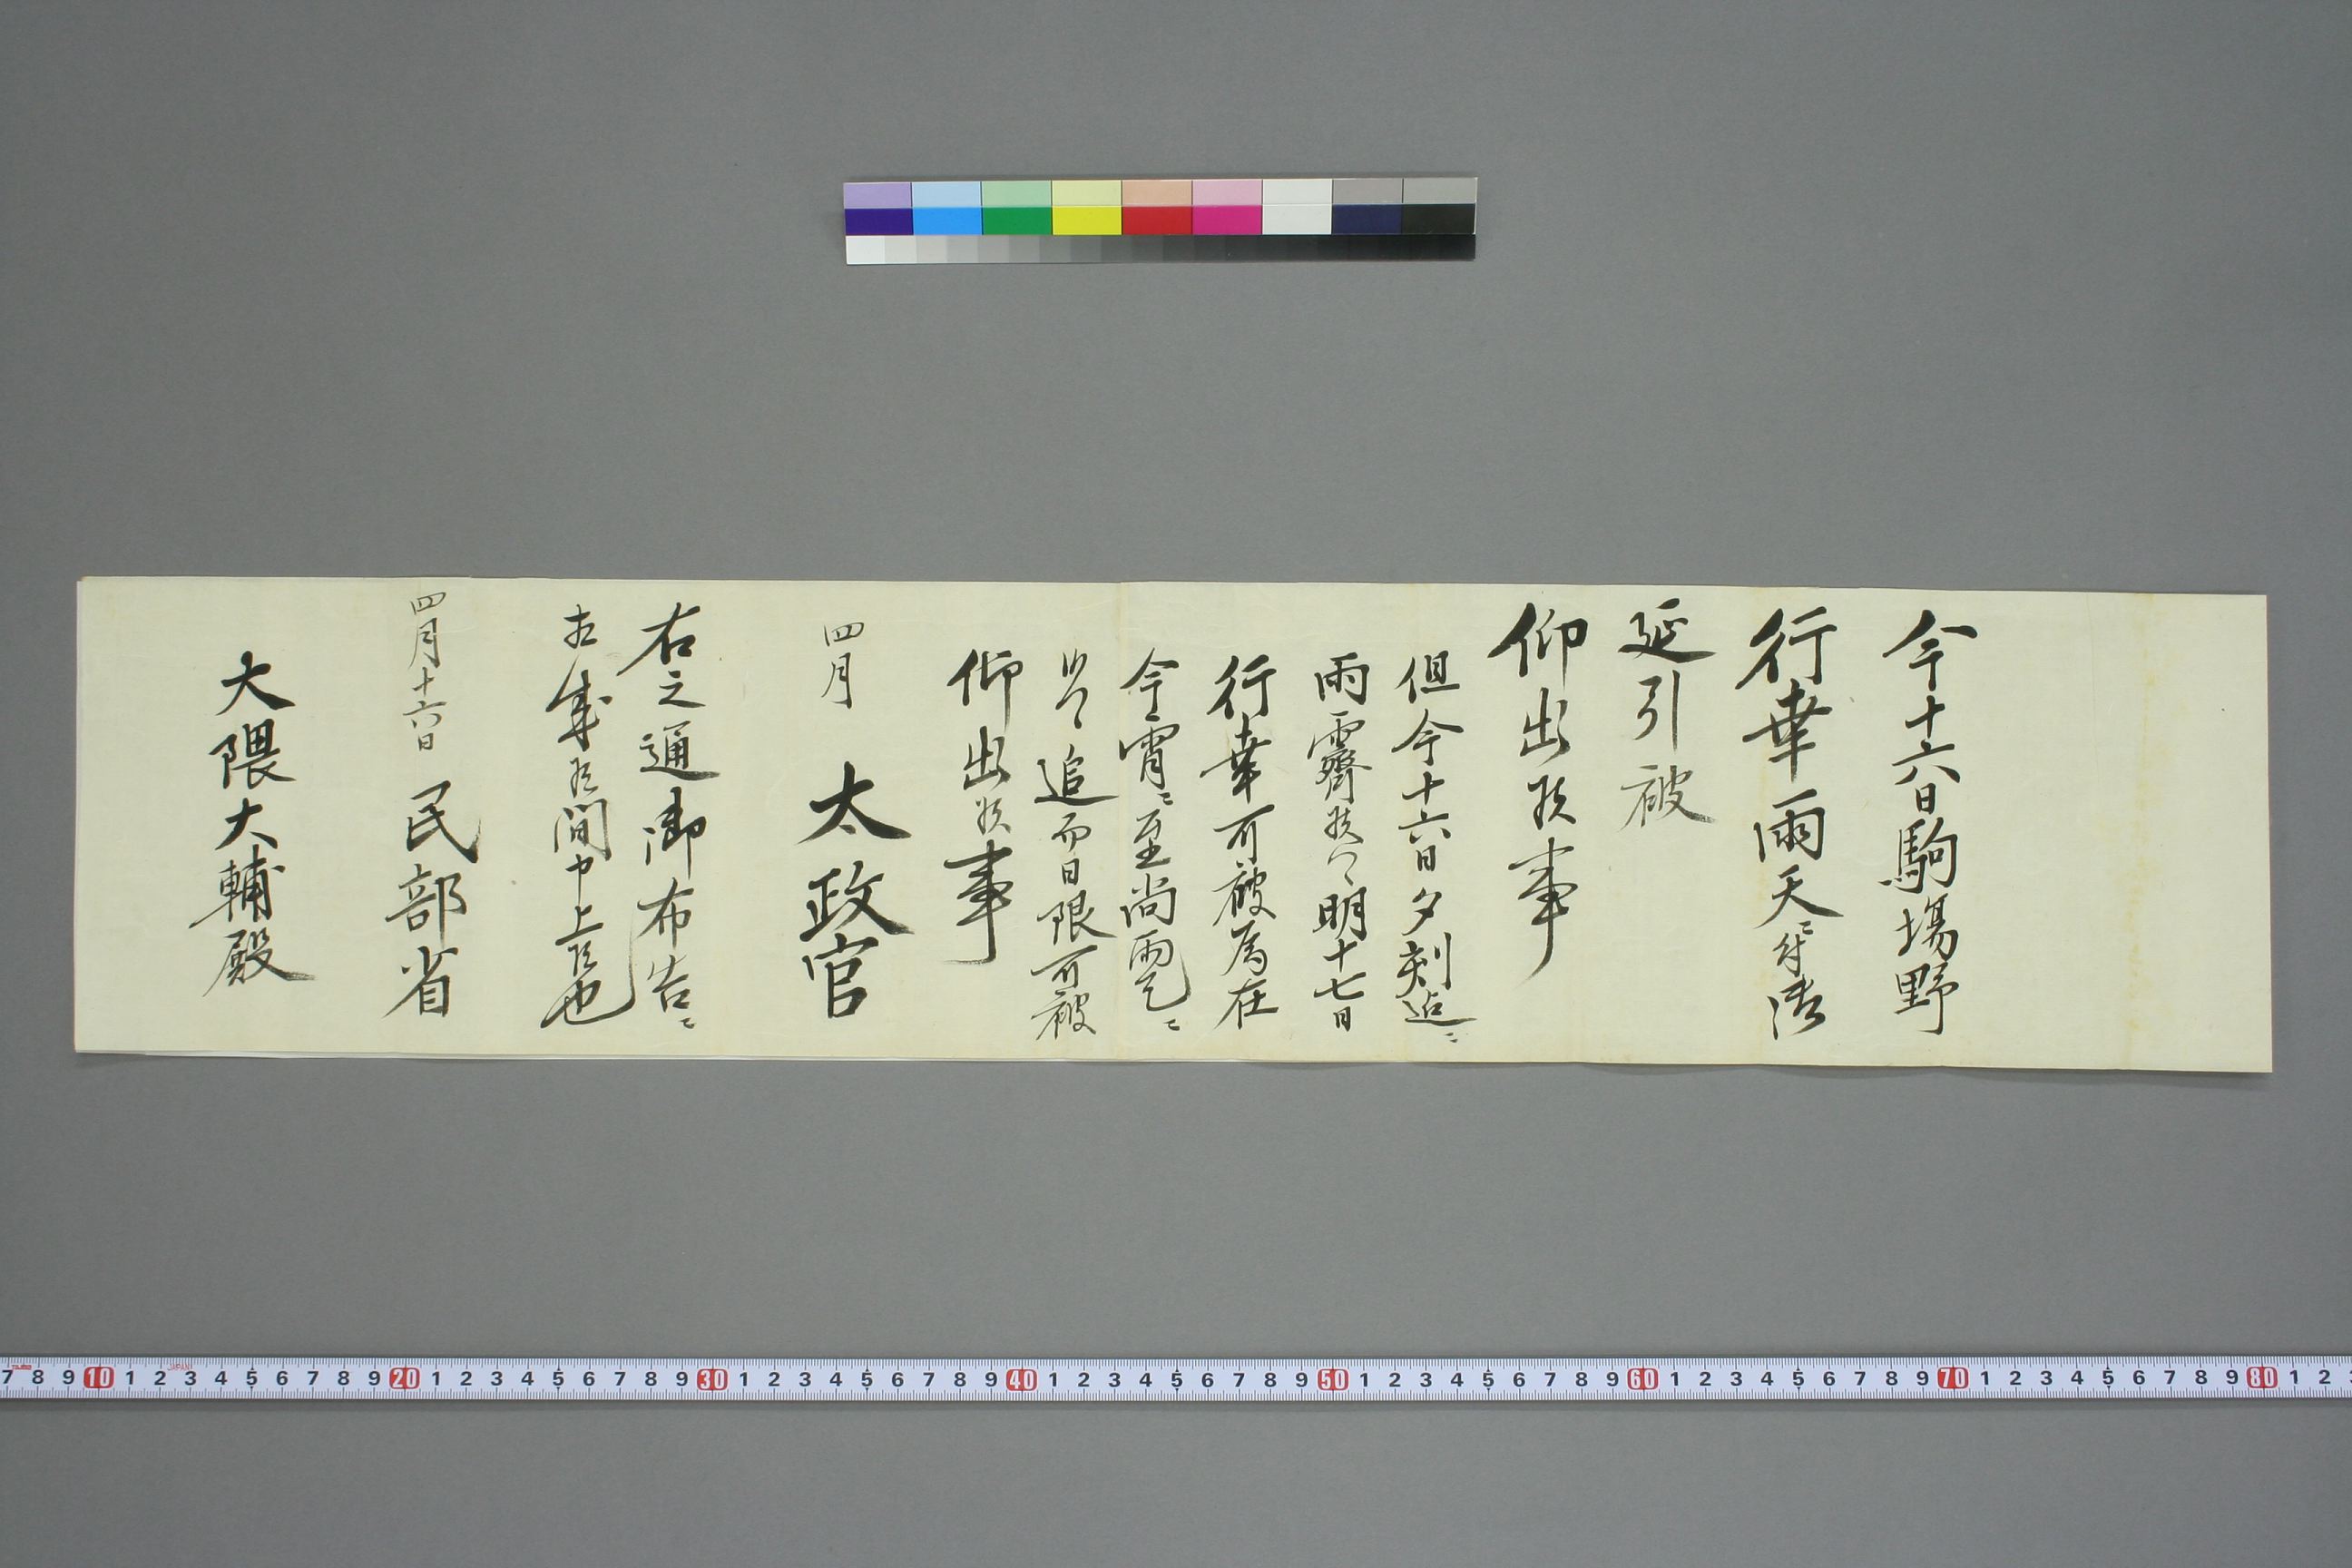 今十六日駒場野
行幸雨天ニ付御
延引被
仰出候事
但今十六日夕刻迄ニ
雨霽候ハヽ明十七日
行幸可被為在
今宵ニ至尚雨天ニ
候ハヽ追而日限可被
仰出候事
四月 太政官
右之通御布告ニ
相成候間申上候也
四月十六日 民部省
大隈大輔殿
7 8 9 10 1 2 3 4 5 6 7 8 9 20 1 2 3 4 5 6 7 8 9 30 1 2 3 4 5 6 7 8 9 40 1 2 3 4 5 6 7 8 9 50 1 2 3 4 5 6 7 8 9 60 1 2 3 4 5 6 7 8 9 70 1 2 3 4 5 6 7 8 9 80 1 2
JAPAN